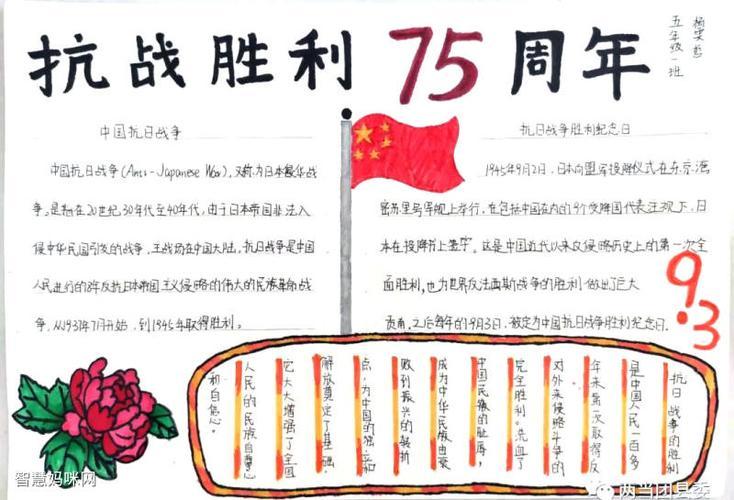 抗战胜利75周年
五年级一班
中国抗日战争
中国抗日战争(Anti-Japanese War),又称为日本侵华战
争。是指在20世纪,30年代至40年代,由于日本帝国非法入
侵中华民国引发的战争,主战场在中国大陆。抗日战争是中国
人民进行的8年反抗日本帝国主义侵略的伟大的民族革命战
争,从1937年7月开始,到1945年取得胜利。
抗日战争胜利纪念日
1945年9月2日,日本向盟军投降仪式在东京湾
密苏里号军舰上举行,在包括中国在内的9个受降国代表注视下,日
本在投降书上签字。这是中国近代以来反侵略历史上的第一次全
面胜利,也为世界反法西斯战争的胜利做出了巨大
贡献,之后每年的9月3日,被定为中国抗日战争胜利纪念日.
9.3
抗日战争的胜利
是中国人民一百多
年来第一次取得反
对外来侵略斗争的
完全胜利。洗雪了
中国民族的耻辱,
成为中华民族由衰
败到振兴的转折
点,为中国的独立和
解放奠定了基础。
它大大增强了全国
人民的民族自尊心
和自信心。
智慧妈咪网
两当团县委